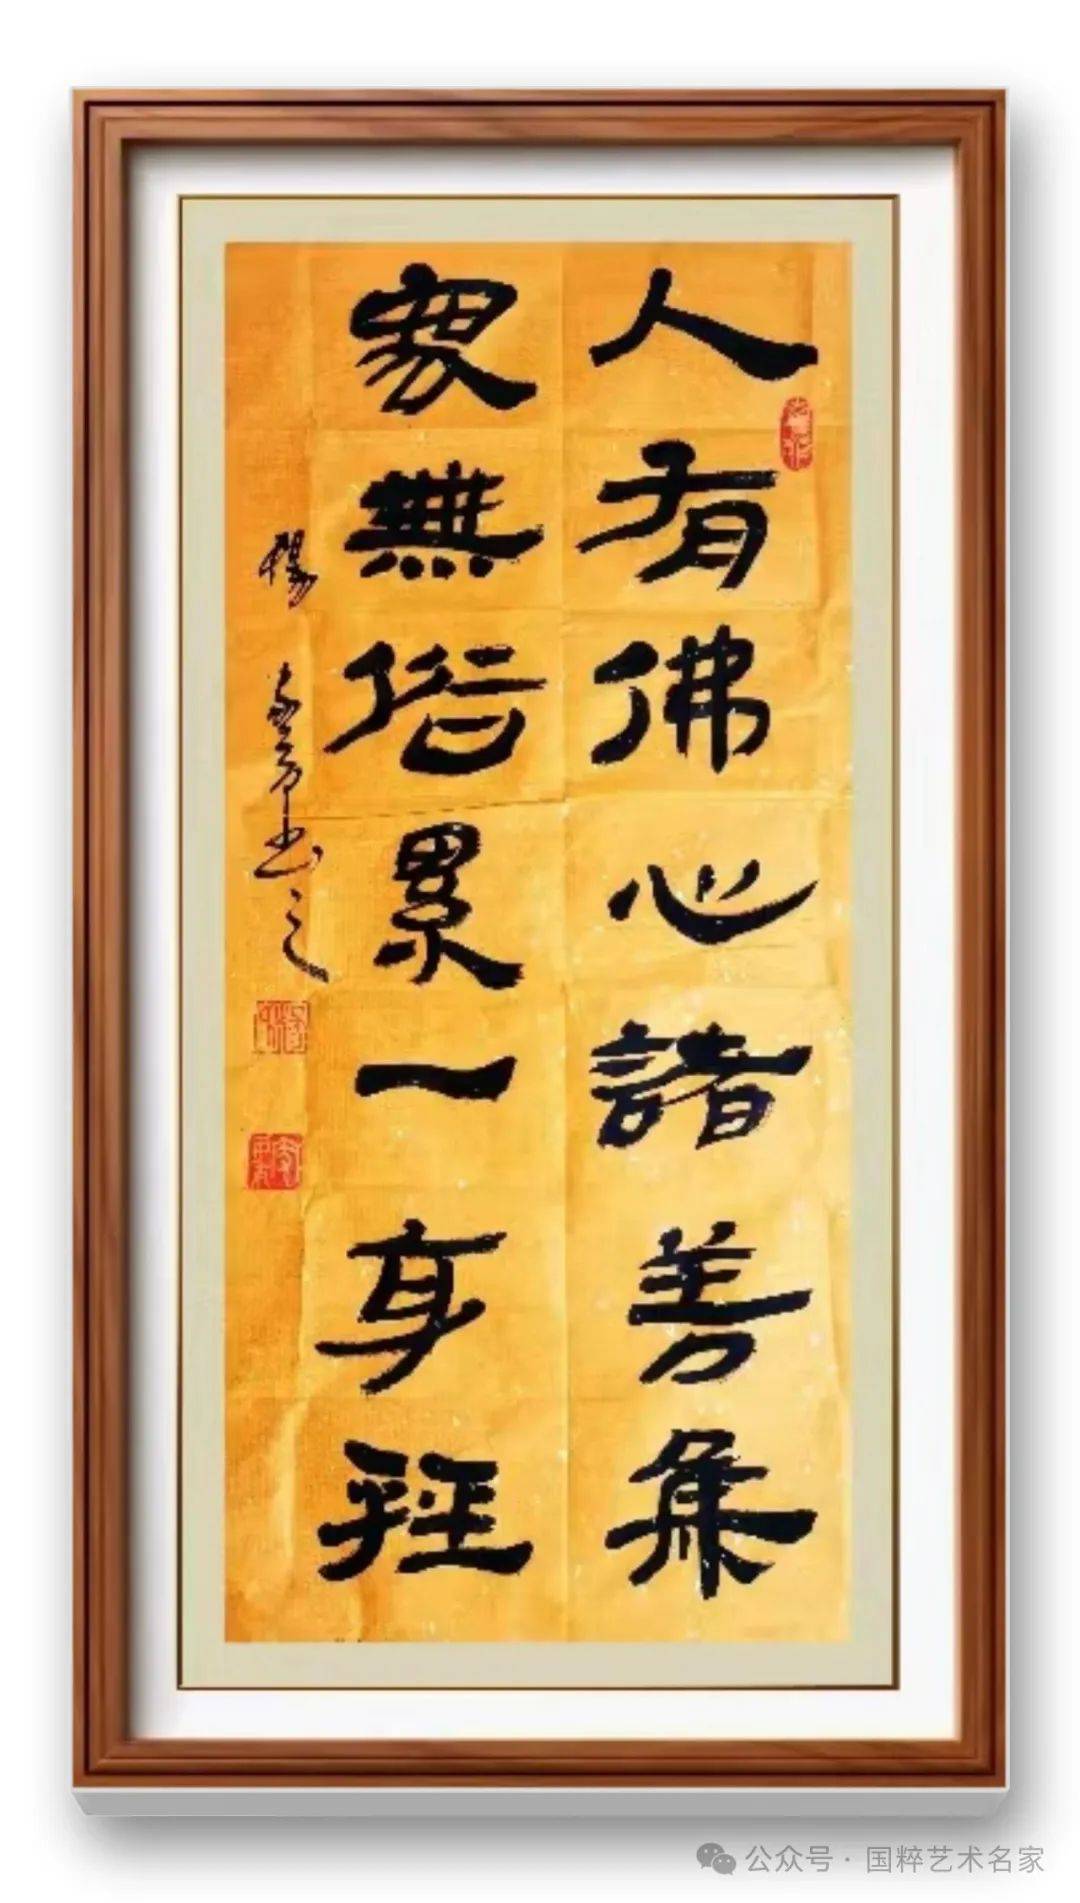 人有佛心諸善集
家無俗累一身輕
楊 书之
公众号 · 国粹艺术名家